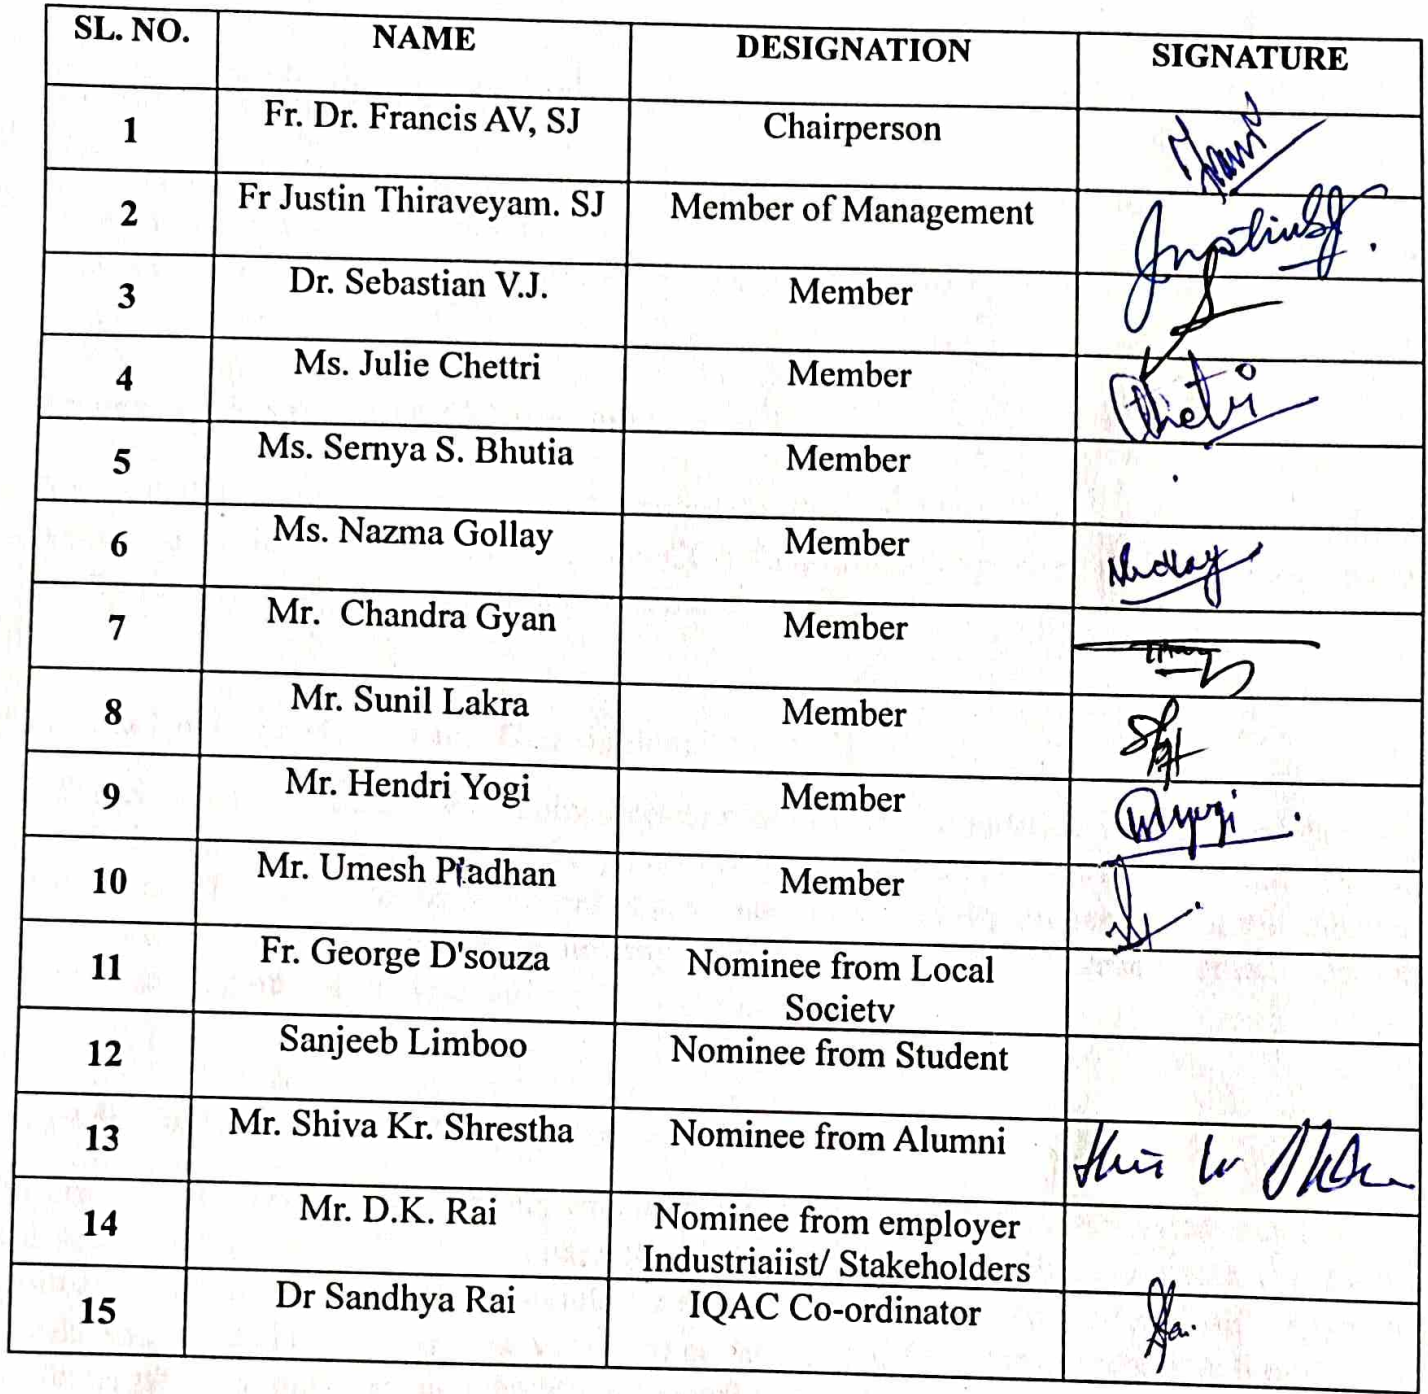 SL. NO. NAME DESIGNATION SIGNATURE
1 Fr. Dr. Francis AV, SJ Chairperson
2 Fr Justin Thiraveyam. SJ Member of Management JustinSJ.
3 Dr. Sebastian V.J. Member
4 Ms. Julie Chettri Member Chetri
5 Ms. Sernya S. Bhutia Member
6 Ms. Nazma Gollay Member
7 Mr. Chandra Gyan Member
8 Mr. Sunil Lakra Member
9 Mr. Hendri Yogi Member
10 Mr. Umesh Pradhan Member
11 Fr. George D'souza Nominee from Local
Society
12 Sanjeeb Limboo Nominee from Student
13 Mr. Shiva Kr. Shrestha Nominee from Alumni
14 Mr. D.K. Rai Nominee from employer
Industriaiist/ Stakeholders
15 Dr Sandhya Rai IQAC Co-ordinator